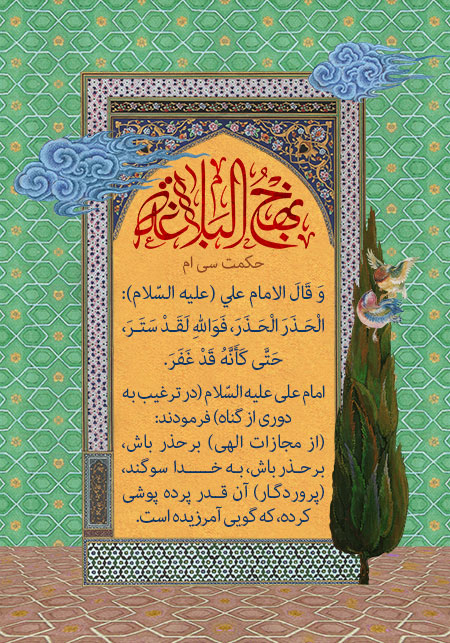 نهج البلاغة
حکمت سی ام
وَ قَالَ الامام علي (علیه السّلام):
الْحَذَرَ الْحَذَرَ، فَوَاللهِ لَقَدْ سَتَرَ،
حَتَّی کَأَنَّهُ قَدْ غَفَرَ.
امام علی علیه السّلام (در ترغیب به
دوری از گناه) فرمودند:
(از مجازات الهی) برحذر باش،
برحذر باش، به خدا سوگند،
(پروردگار) آن قدر پرده پوشی
کرده، که گویی آمرزیده است.